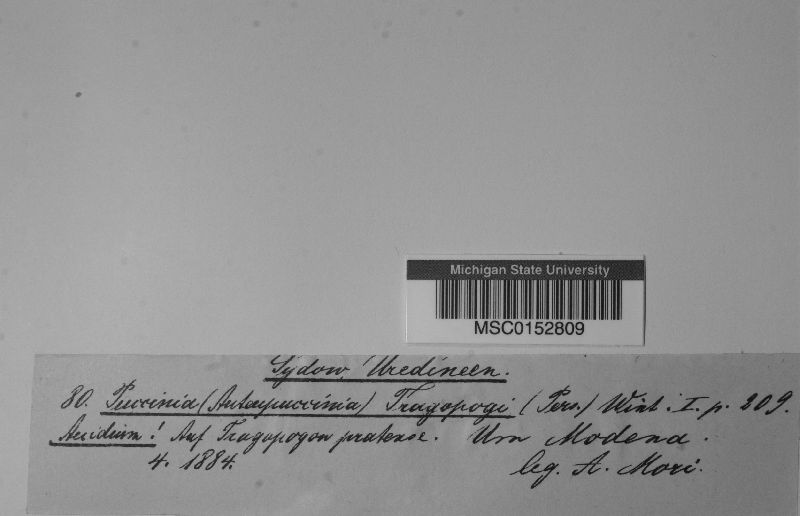 Michigan State University
MSC0152809
Sydow, Uredineen.
80. Puccinia (Auteupuccinia) Tragopogi (Pers.) Wint. I. p. 209.
Aecidium! Auf Tragopogon pratense. Um Modena.
4. 1884.
leg. A. Mori.